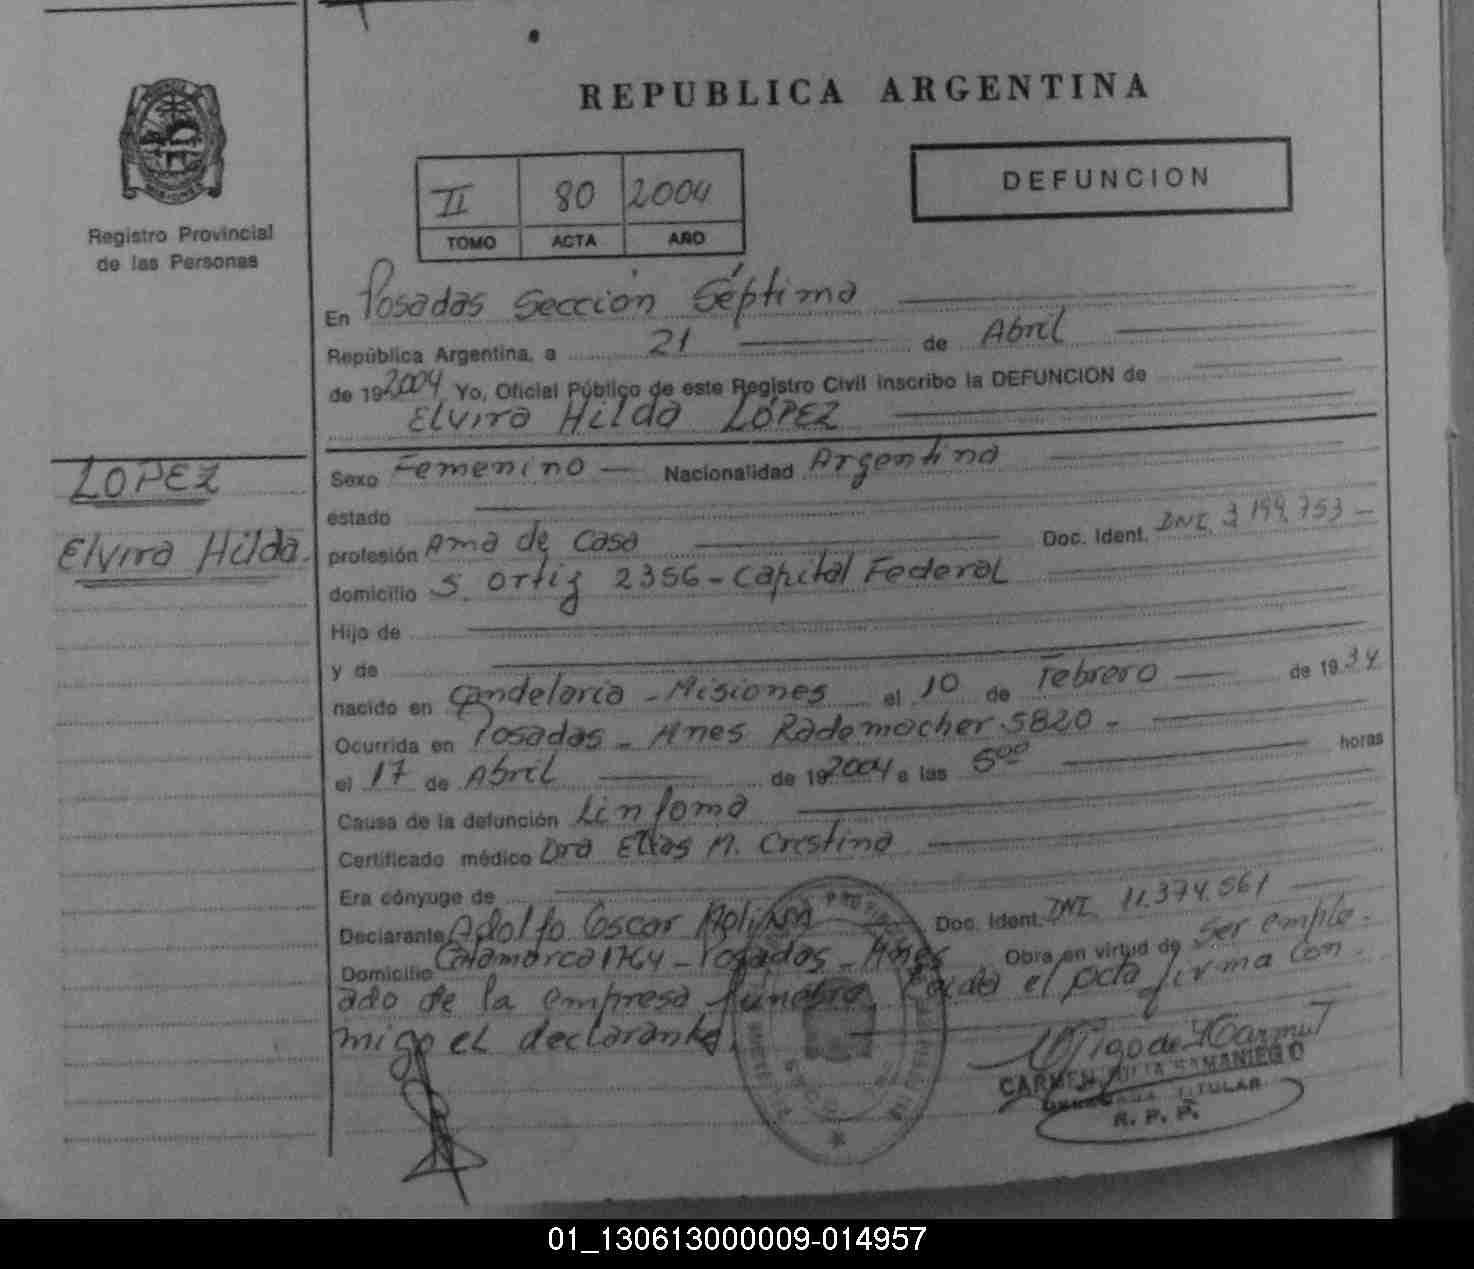 REPUBLICA ARGENTINA
Registro Provincial
de las Personas
II 80 2004
TOMO ACTA AÑO
DEFUNCION
En Posadas Sección Séptima
República Argentina, a 21 de Abril
de 192004 Yo, Oficial Público de este Registro Civil inscribo la DEFUNCION de
Elvira Hilda LÓPEZ
LOPEZ
Elvira Hilda.
Sexo Femenino Nacionalidad Argentina
estado
profesión Ama de Casa Doc. Ident. DNI. 3.199.753
domicilio S. Ortiz 2356 - Capital Federal
Hijo de
y de
nacido en Candelaria - Misiones el 10 de Febrero de 1934
Ocurrida en Posadas - Mnes Rademacher 5820 -
el 17 de Abril de 192004 a las 5 00 horas
Causa de la defunción Linfoma
Certificado médico Dra Elias M. Cristina
Era cónyuge de
Declarante Adolfo Oscar Doc. Ident. DNI. 11.374.561
Domicilio Catamarca 1764 - Posadas - Mnes Obra en virtud de ser emple-
ado de la empresa funebre. Leida el acta firma con-
migo el declarante.
CARMEN JULIA SAMANIEGO
TITULAR
R. P. P.
01_130613000009-014957